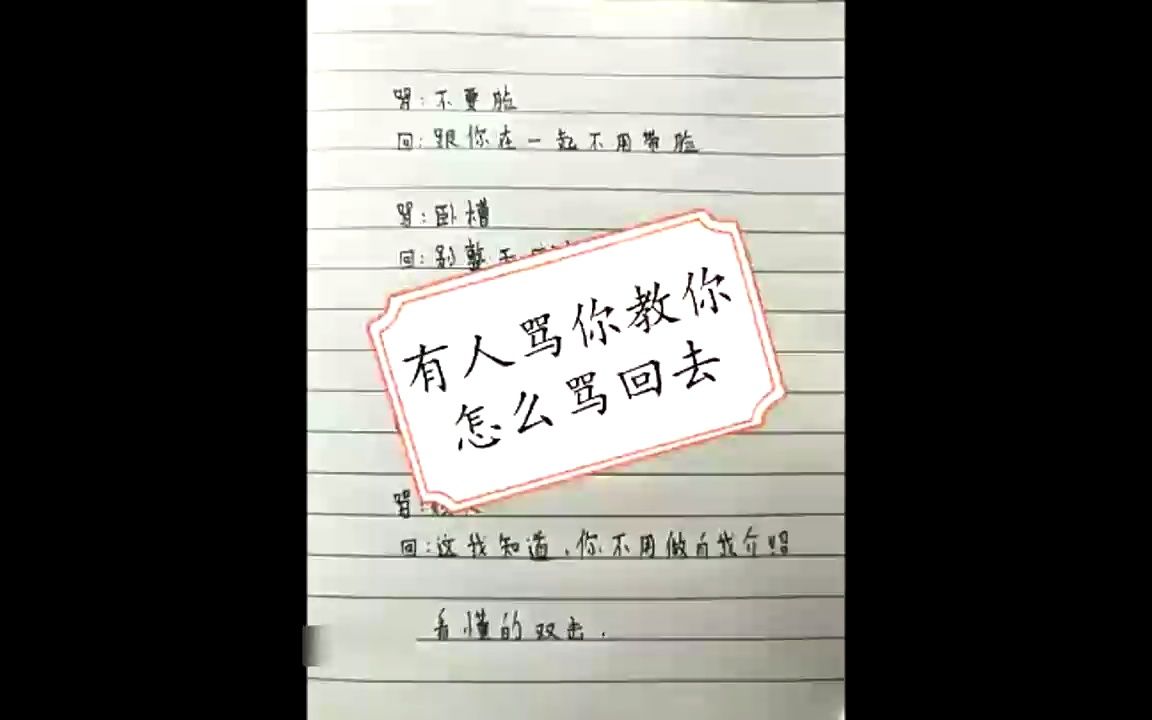 骂:不要脸
回:跟你在一起不用带脸
骂:卧槽
回:别整天
有人骂你教你
怎么骂回去
骂:
回:这我知道,你不用做自我介绍
看懂的双击.